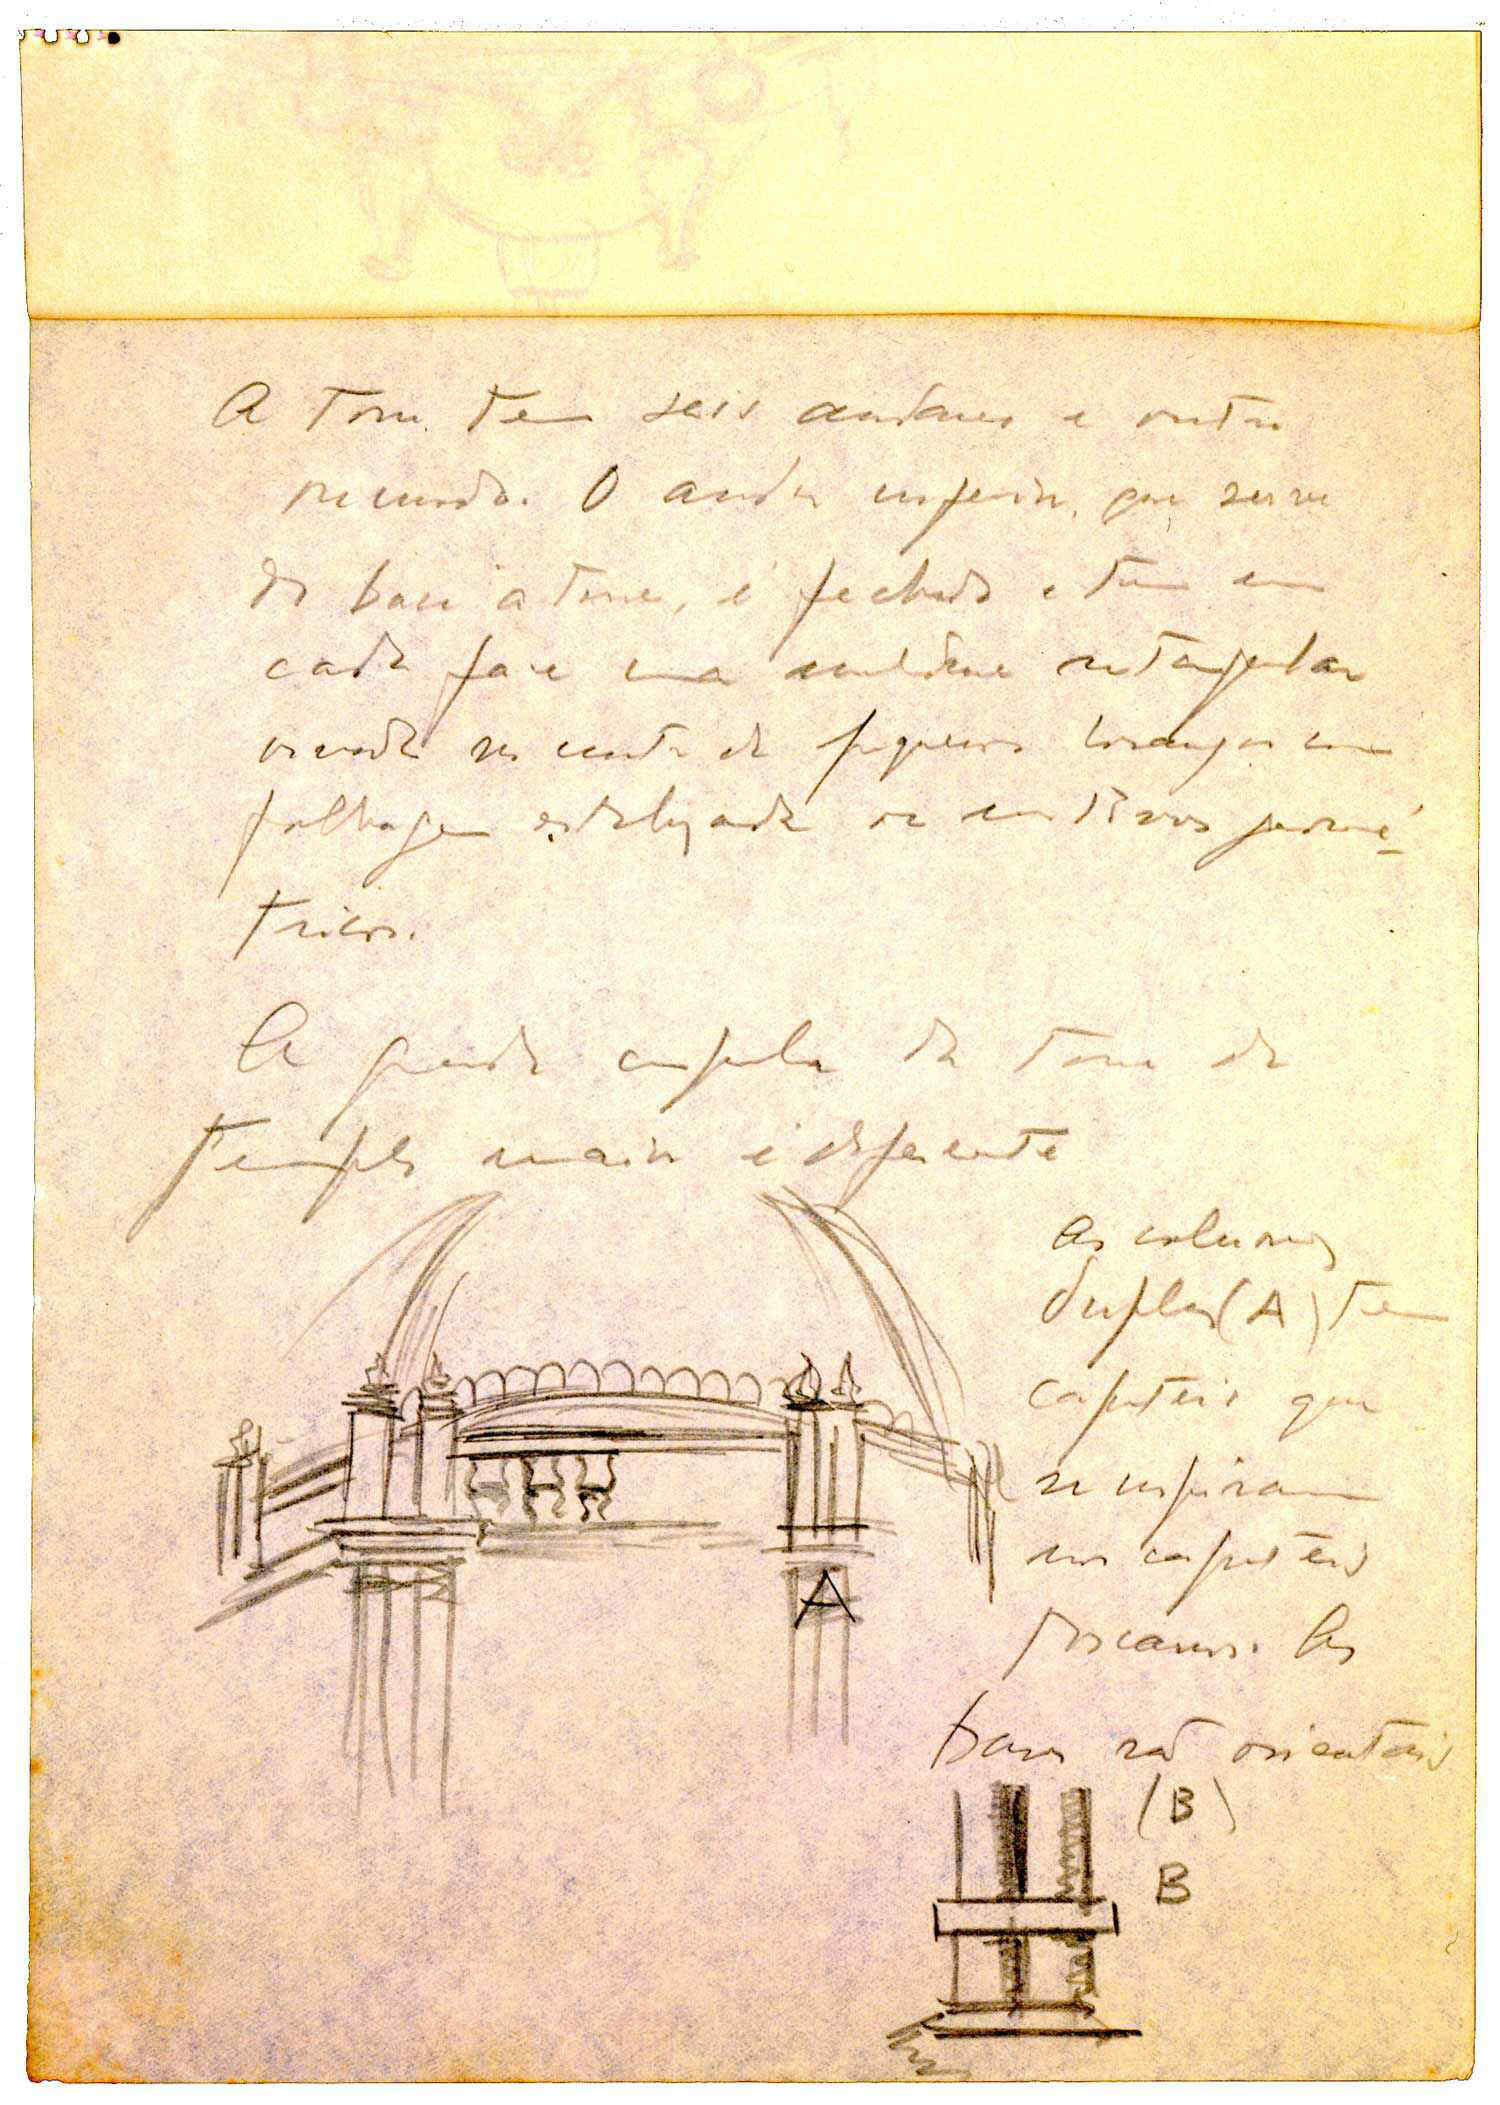 A torre tem seis andares e outro
recuado. O andar inferior, que serve
de base à torre, é fechado e tem em
cada face uma moldura retangular
ornada no centro de pequenos losangos com
folhagem estilizada ou motivos geomé-
tricos.
A grande cupula da torre do
templo maior é diferente
As colunas
duplas (A) tem
capiteis que
se inspiram
nos capiteis
toscanos. As
bases são orientais
(B)
A
B